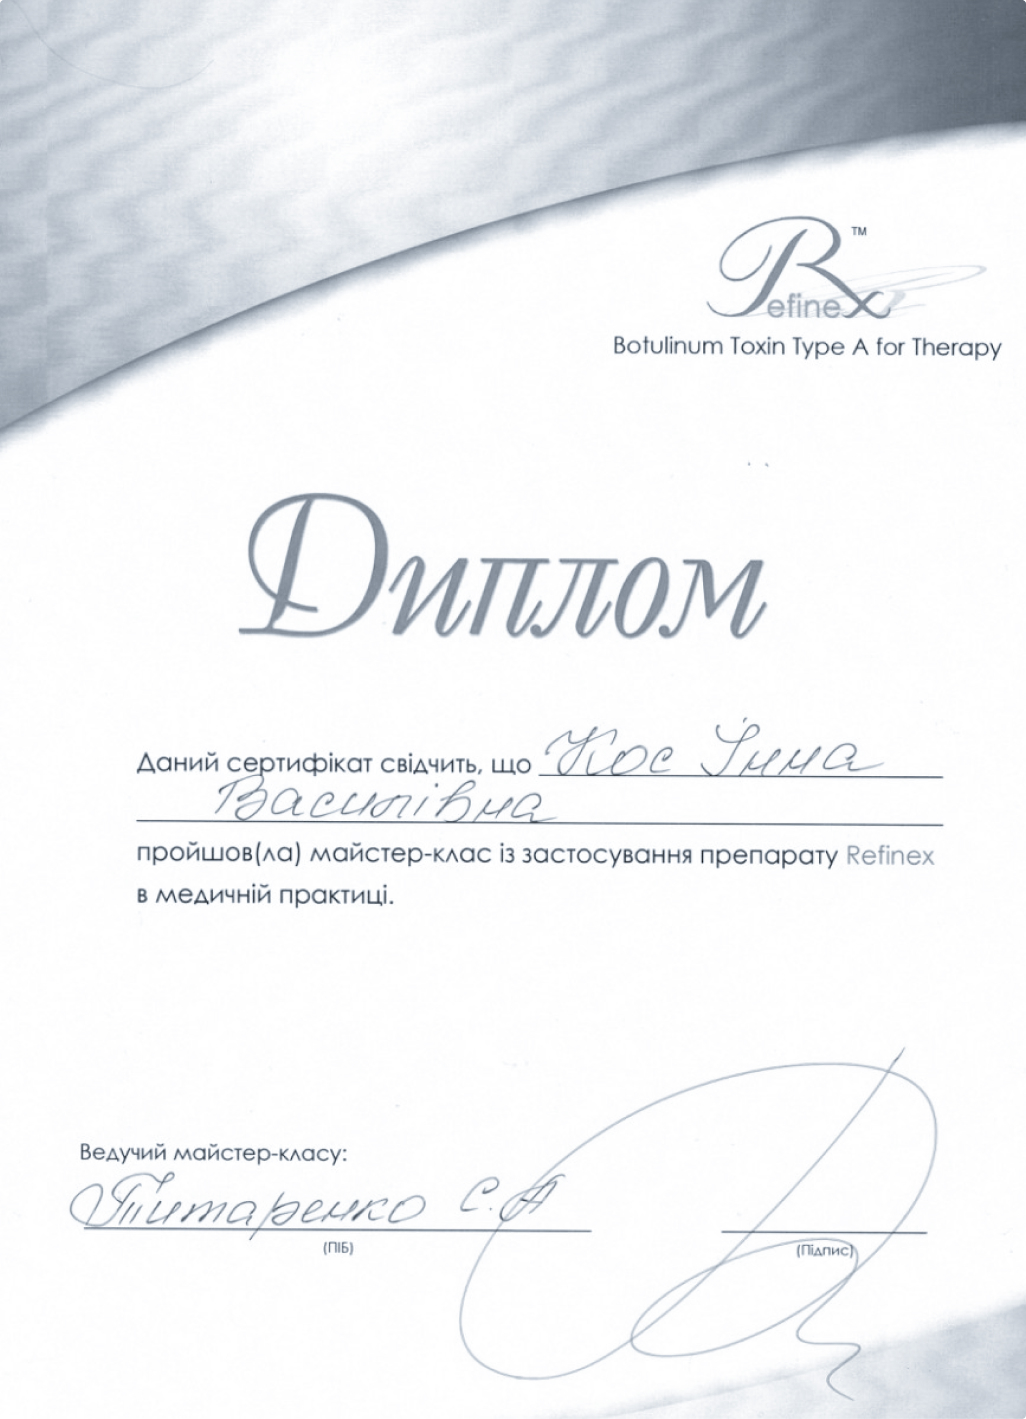 Refinex™
Botulinum Toxin Type A for Therapy
Диплом
Даний сертифікат свідчить, що Кос Інна
Василівна
пройшов(ла) майстер-клас із застосування препарату Refinex
в медичній практиці.
Ведучий майстер-класу:
Титаренко С.А
(ПІБ)
(Підпис)